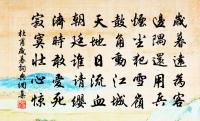 歲暮遠為客
邊隅還用兵
煙塵犯雪嶺
鼓角動江城
天地日流血
朝廷誰請纓
濟時敢愛死
寂寞壯心驚
杜甫歲暮詞典網書